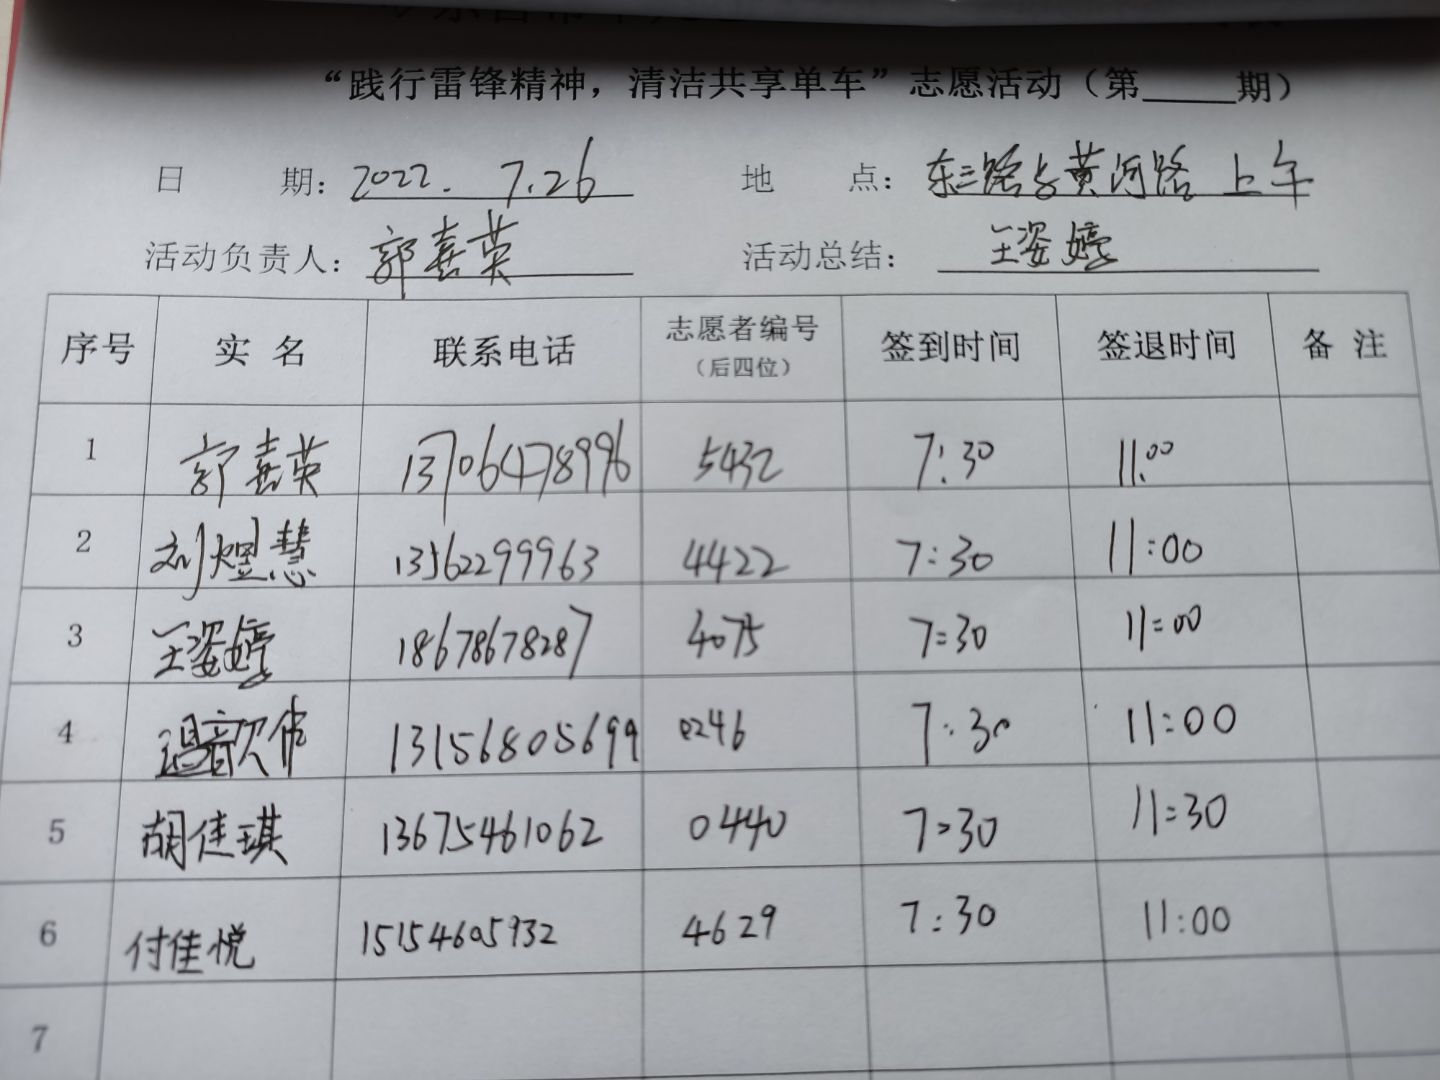 “践行雷锋精神，清洁共享单车”志愿活动（第____期）
日 期：2022. 7.26 地 点：东三路与黄河路 上午
活动负责人：郭喜英 活动总结：王姿婷
序号 实名 联系电话 志愿者编号（后四位） 签到时间 签退时间 备注
1 郭喜英 13706478996 5432 7:30 11:00
2 刘煜慧 13562299963 4422 7:30 11:00
3 王姿婷 18678678287 4075 7:30 11:00
4 13156805699 0246 7:30 11:00
5 胡佳琪 13675461062 0440 7:30 11:30
6 付佳悦 15154605932 4629 7:30 11:00
7